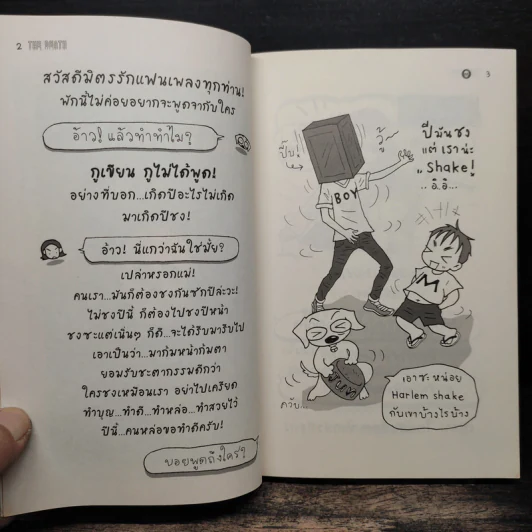 2
สวัสดีมิตรรักแฟนเพลงทุกท่าน!
พักนี้ไม่ค่อยอยากจะพูดจากับใคร
อ้าว! แล้วทำทำไม?
กูเขียน กูไม่ได้พูด!
อย่างที่บอก...เกิดปีอะไรไม่เกิด
มาเกิดปีชง!
อ้าว! นี่แกว่าฉันใช่มั้ย?
เปล่าหรอกแม่!
คนเรา...มันก็ต้องชงกันซักปีล่ะวะ!
ไม่ชงปีนี้ ก็ต้องไปชงปีหน้า
ชงซะแต่เนิ่นๆ ก็ดี...จะได้รีบมารีบไป
เอาเป็นว่า...มาก้มหน้าก้มตา
ยอมรับชะตากรรมดีกว่า
ใครชงเหมือนเรา อย่าไปเครียด
ทำบุญ...ทำดี...ทำหล่อ...ทำสวยไว้
ปีนี้...คนหล่อขอทำดีครับ!
บอยพูดถึงใคร?
3
ปีมันชง
แต่ เราน่ะ
Shake!
..อิ..อิ...
ปั๊บ!
วู้
BOY
M
ควับ...
เอาซะ หน่อย
Harlem shake
กับเขาบ้างไรบ้าง